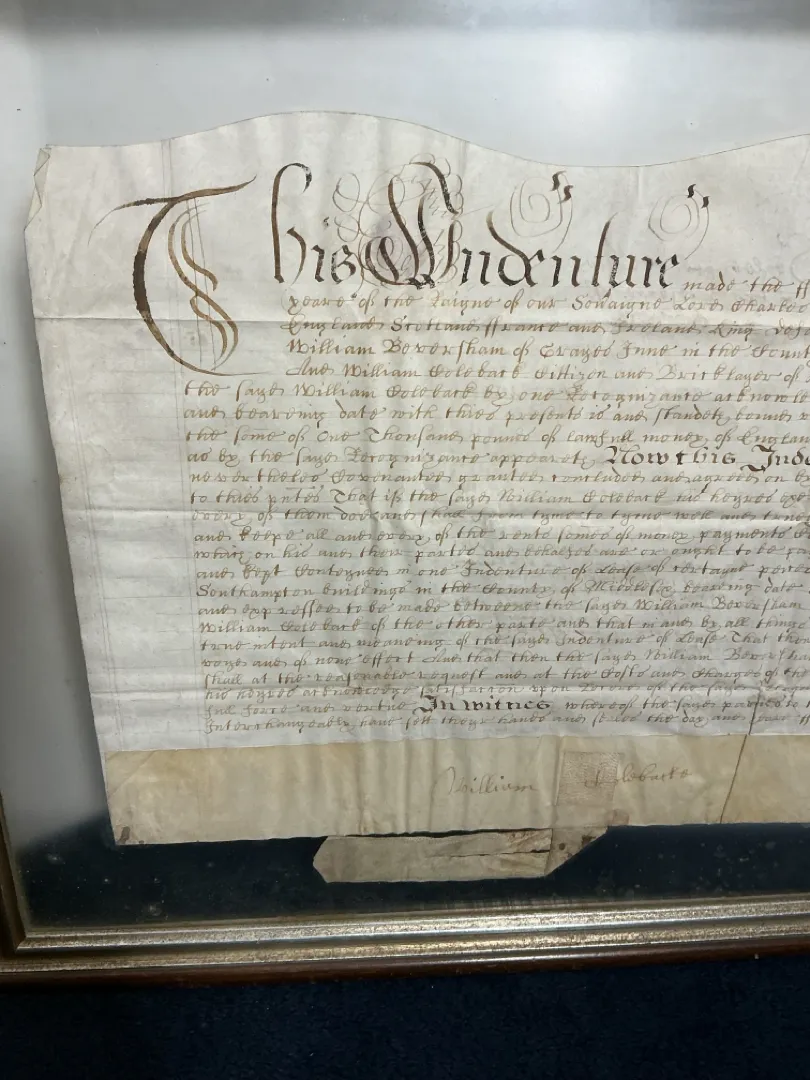 This Indenture made the
yeare of the Raigne of our Soveraigne Lord Charles
England Scotland ffrance and Ireland King defe
William Beversham of Grayes Inne in the Count
And William Coleback Cittizen and Bricklayer of
the sayd William Coleback by one Recognizance acknowle
and beareing date with theis presents is and standeth bound
the some of One Thousand pounds of lawfull money of England
as by the sayd Recognizance appeareth Now this Inde
nevertheles Covenanted graunted concluded and agreed on by
to theis pñtes That if the sayd William Coleback his heyres exe
every of them doe and shall from tyme to tyme well and truely
and keepe all and every of the rents somes of money payments
which on his and their parted and behalfes are or ought to be pa
and kept Conteyned in one Indenture of Lease of certayne
Southampton buildings in the County of Middlesex beareing date
and expressed to be made betweene the sayd William Beversham
William Coleback of the other parte and that in and by all things
true intent and meaneing of the sayd Indenture of Lease That then
voyd and of none effect And that then the sayd William Beversha
shall at the reasonable request and at the Costs and Charges of the
his heyres acknowledge satisfaction upon Record of the sayd
full force and vertue In witnes whereof the sayd parties to
Interchangeably have sett their hands and seales the day and yeare
William Colebacke